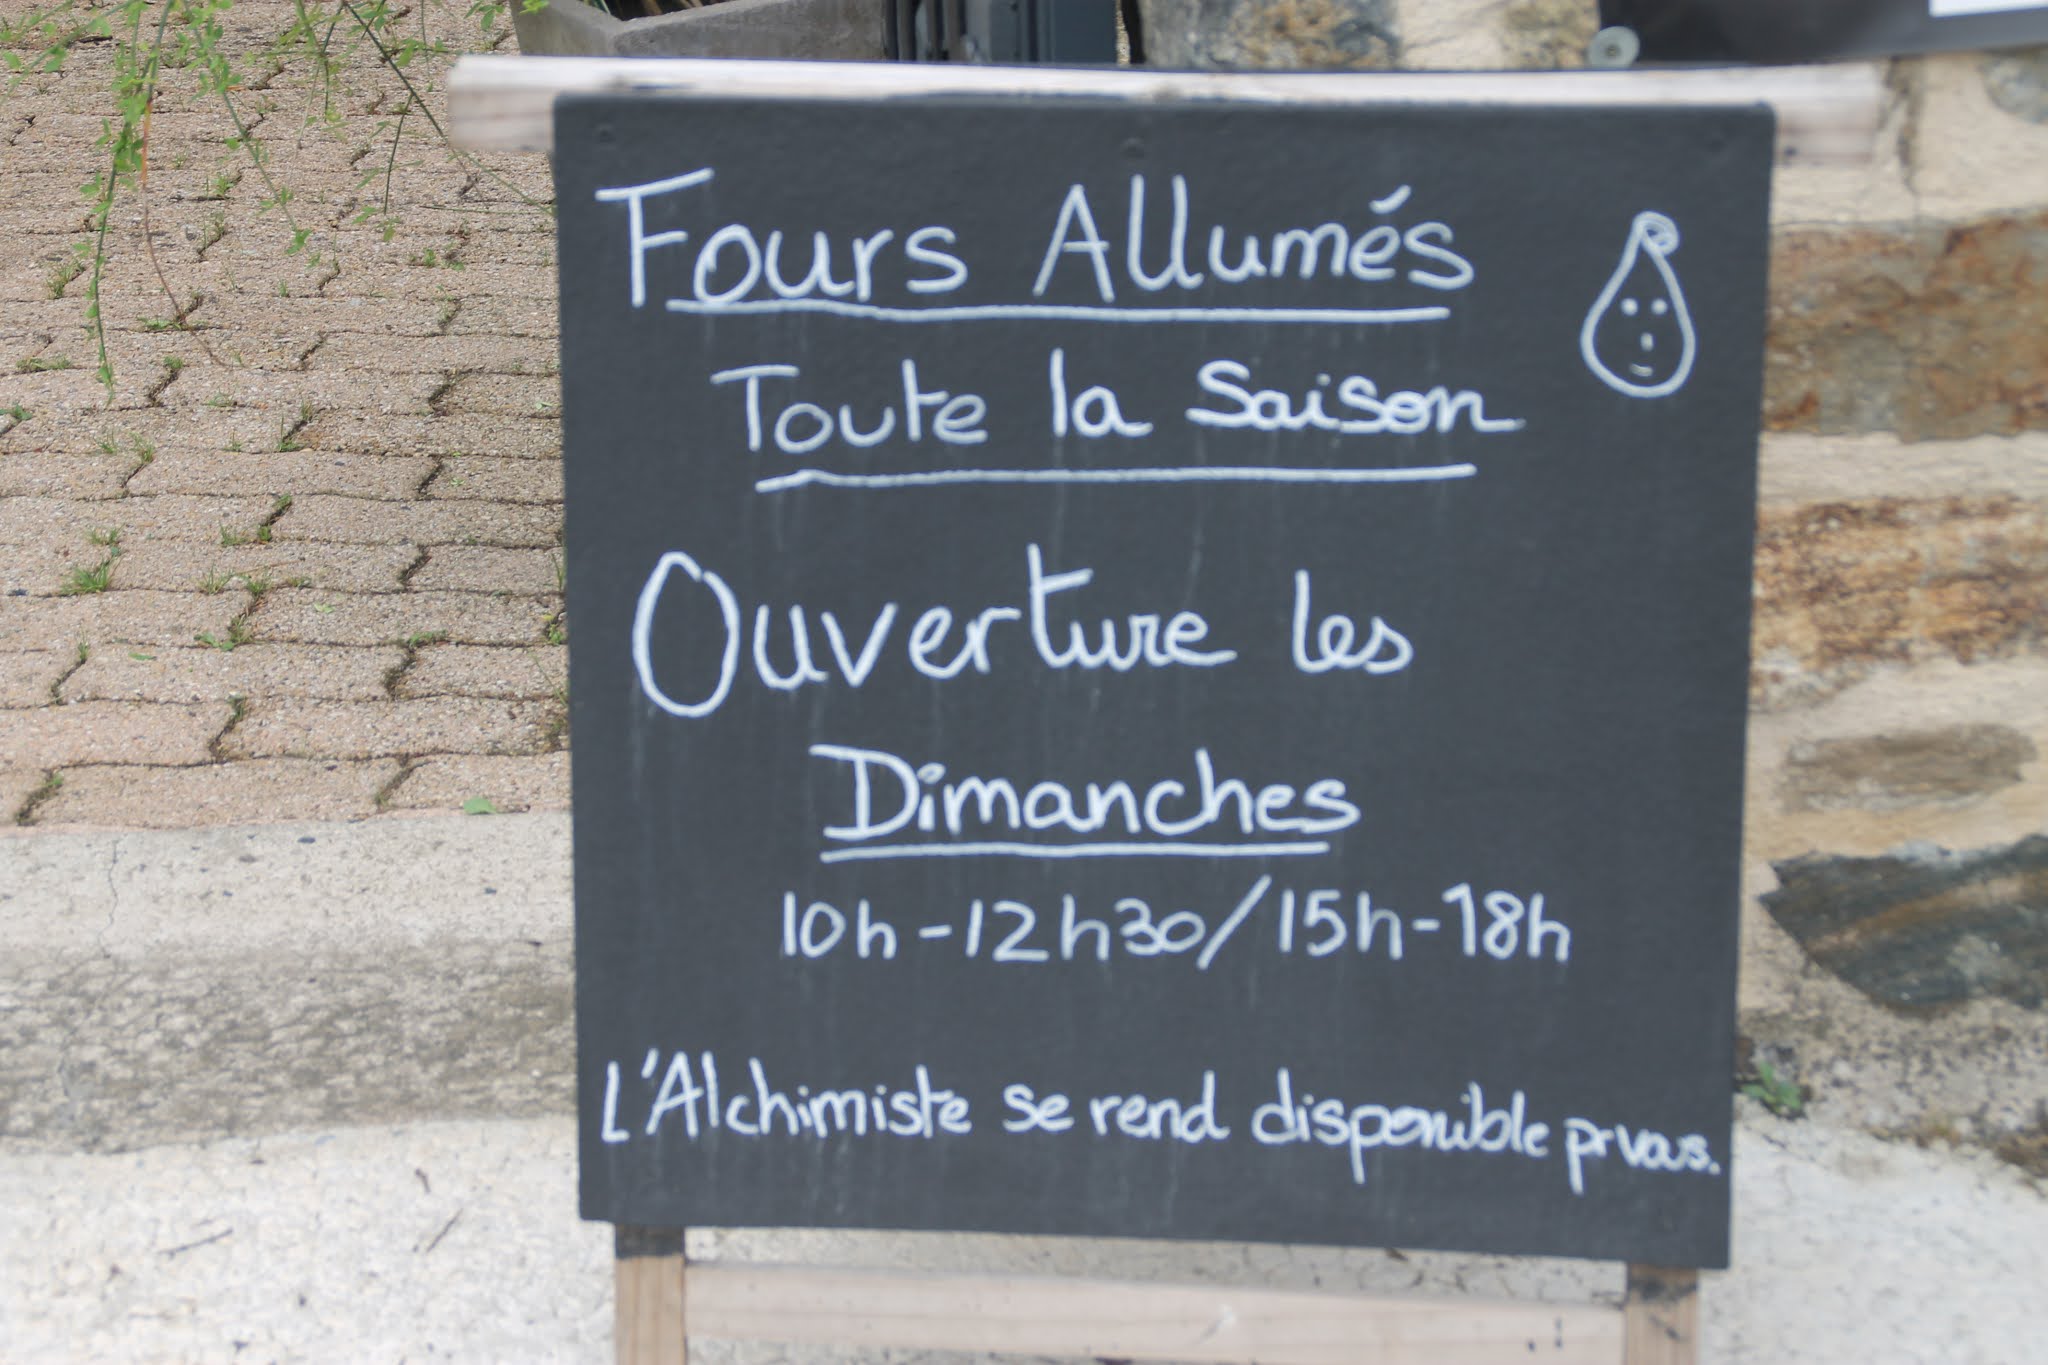 Fours Allumés
Toute la Saison
Ouverture les
Dimanches
10h-12h30/15h-18h
L'Alchimiste se rend disponible pr vous.